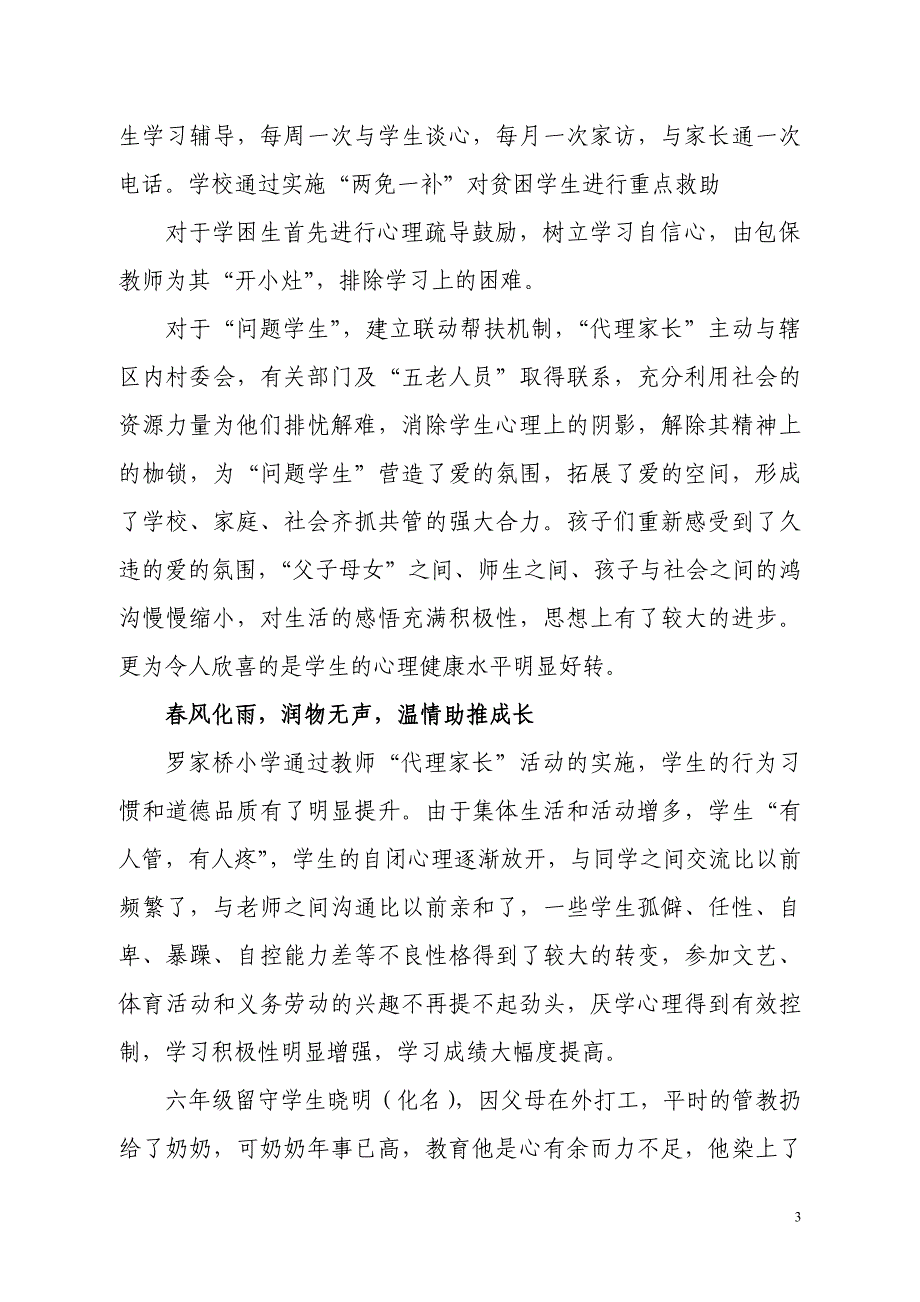 生学习辅导，每周一次与学生谈心，每月一次家访，与家长通一次
电话。学校通过实施“两免一补”对贫困学生进行重点救助
对于学困生首先进行心理疏导鼓励，树立学习自信心，由包保
教师为其“开小灶”，排除学习上的困难。
对于“问题学生”，建立联动帮扶机制，“代理家长”主动与辖
区内村委会，有关部门及“五老人员”取得联系，充分利用社会的
资源力量为他们排忧解难，消除学生心理上的阴影，解除其精神上
的枷锁，为“问题学生”营造了爱的氛围，拓展了爱的空间，形成
了学校、家庭、社会齐抓共管的强大合力。孩子们重新感受到了久
违的爱的氛围，“父子母女”之间、师生之间、孩子与社会之间的鸿
沟慢慢缩小，对生活的感悟充满积极性，思想上有了较大的进步。
更为令人欣喜的是学生的心理健康水平明显好转。
春风化雨，润物无声，温情助推成长
罗家桥小学通过教师“代理家长”活动的实施，学生的行为习
惯和道德品质有了明显提升。由于集体生活和活动增多，学生“有
人管，有人疼”，学生的自闭心理逐渐放开，与同学之间交流比以前
频繁了，与老师之间沟通比以前亲和了，一些学生孤僻、任性、自
卑、暴躁、自控能力差等不良性格得到了较大的转变，参加文艺、
体育活动和义务劳动的兴趣不再提不起劲头，厌学心理得到有效控
制，学习积极性明显增强，学习成绩大幅度提高。
六年级留守学生晓明（化名），因父母在外打工，平时的管教扔
给了奶奶，可奶奶年事已高，教育他是心有余而力不足，他染上了
3